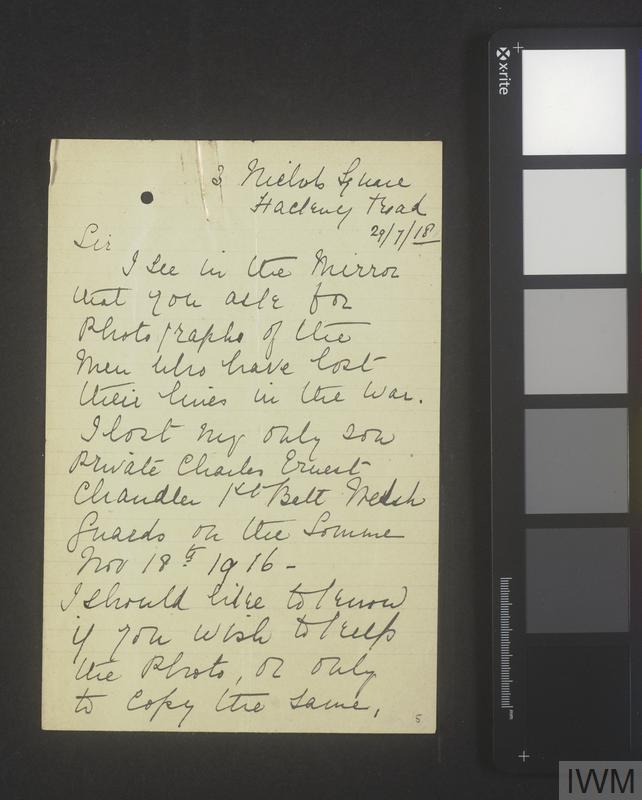 3 Nichols Square
Hackney Road
29/7/18
Sir
I see in the Mirror
that you ask for
Photographs of the
Men who have lost
their lives in the war.
I lost my only son
Private Charles Ernest
Chandler 1st Batt Welsh
Guards on the Somme
Nov 18th 1916-
I should like to know
if you wish to keep
the Photo, or only
to copy the same,
5
x-rite
mm
IWM